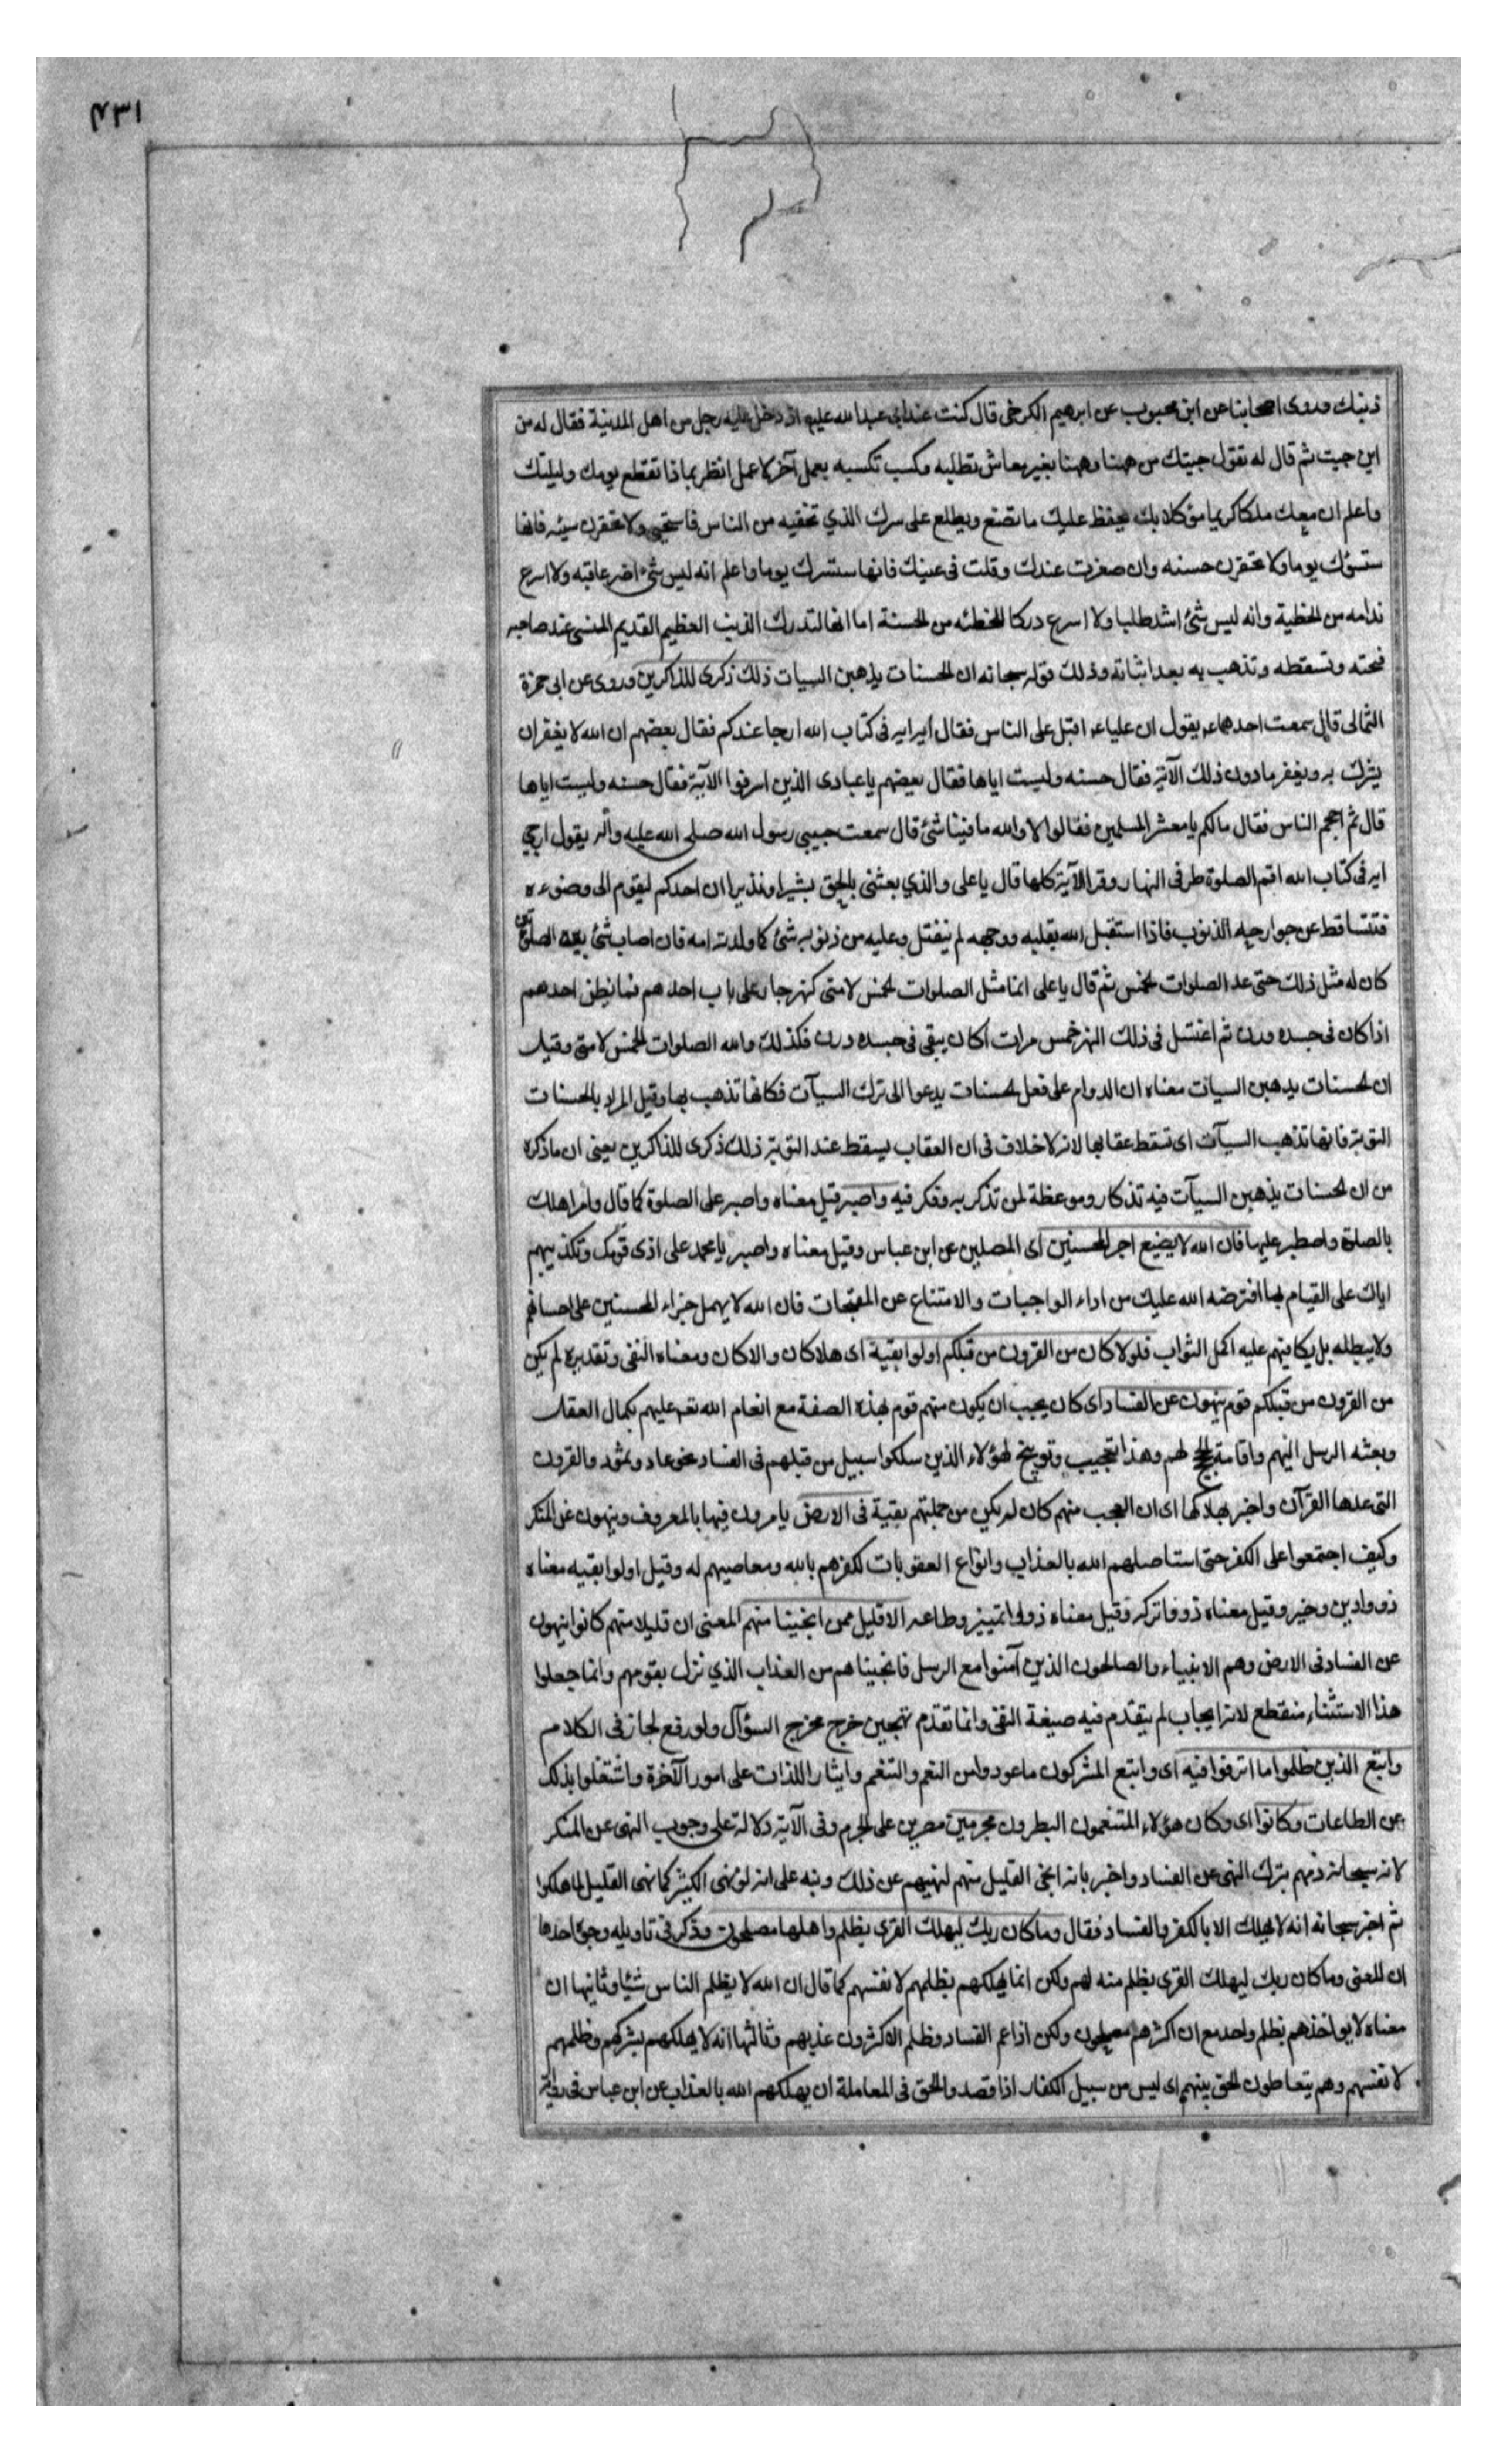 ٤٣١
ذنبك وروى اصحابنا عن ابن محبوب عن ابرهيم الكرخى قال كنت عند ابى عبد الله عليه اذ دخل عليه رجل من اهل المدينة فقال له من
اين جيت ثم قال له تقول جيتك من ههنا وههنا بغير معاش تطلبه ومكسب تكسبه بعمل آخر لا عمل انظر بماذا تقطع يومك وليلتك
واعلم ان معك ملكا كريما موكلا بك يحفظ عليك ما تصنع ويطلع على سرك الذي تخفيه من الناس فاستحيى ولا تحقرن سيئه فانها
ستسؤك يوما ولا تحقرن حسنه وان صغرت عندك وقلت فى عينك فانها ستسرك يوما واعلم انه ليس شئ اضر عاقبه ولا اسرع
ندامه من الخطية وانه ليس شئ اشد طلبا ولا اسرع دركا للخطئه من الحسنة اما انها لتدرك الذنب العظيم القديم المنسى عند صاحبه
فتحته وتسقطه وتذهب به بعد اثباته وذلك قوله سبحانه ان الحسنات يذهبن السيات ذلك ذكرى للذاكرين وروى عن ابى حمزة
الثمالى قال سمعت احدهما ع يقول ان عليا ع اقبل على الناس فقال اية اية فى كتاب الله ارجا عندكم فقال بعضهم ان الله لا يغفر ان
يشرك به ويغفر ما دون ذلك الآية فقال حسنه وليست اياها فقال بعضهم يا عبادى الذين اسرفوا الآية فقال حسنه وليست اياها
قال ثم احجم الناس فقال مالكم يا معشر المسلمين فقالوا لا والله ما فينا شئ قال سمعت حبيبى رسول الله صلى الله عليه واله يقول ارجى
اية فى كتاب الله اقم الصلوة طرفى النهار وقرا الآية كلها قال يا على والذي بعثنى بالحق بشيرا ونذيرا ان احدكم ليقوم الى وضوءه
فتتساقط عن جوارحه الذنوب فاذا استقبل الله بقلبه ووجهه لم ينفتل وعليه من ذنوبه شئ كما ولدته امه فان اصاب شئ بين الصلوتين
كان له مثل ذلك حتى عد الصلوات الخمس ثم قال يا على انما مثل الصلوات الخمس لامتى كنهر جار على باب احدهم فما يظن احدهم
اذا كان فى جسده درن ثم اغتسل فى ذلك النهر خمس مرات اكان يبقى فى جسده درن فكذلك والله الصلوات الخمس لامتى وقيل
ان الحسنات يذهبن السيات معناه ان الدوام على فعل الحسنات يدعوا الى ترك السيآت فكانها تذهب بها وقيل المراد بالحسنات
التوبة فانها تذهب السيآت اى تسقط عقابها لانه لا خلاف فى ان العقاب يسقط عند التوبة ذلك ذكرى للذاكرين يعنى ان ما ذكره
من ان الحسنات يذهبن السيآت فيه تذكار وموعظة لمن تذكر به وفكر فيه واصبر قيل معناه واصبر على الصلوة كما قال وامر اهلك
بالصلوة واصطبر عليها فان الله لا يضيع اجر المحسنين اى المصلين عن ابن عباس وقيل معناه واصبر يا محمد على اذى قومك وتكذيبهم
اياك على القيام بما افترضه الله عليك من اداء الواجبات والامتناع عن المقبحات فان الله لا يهمل جزاء المحسنين على احسانهم
ولا يبطله بل يكافيهم عليه اكمل الثواب فلولا كان من القرون من قبلكم اولوا بقية اى هلا كان والا كان ومعناه النفى وتقديره لم يكن
من القرون من قبلكم قوم ينهون عن الفساد اى كان يجب ان يكون منهم قوم بهذه الصفة مع انعام الله تعه عليهم بكمال العقل
وبعثه الرسل اليهم واقامة الحج لهم وهذا تعجيب وتوبيخ لهؤلاء الذين سلكوا سبيل من قبلهم فى الفساد نحو عاد وثمود والقرون
التى عدها القرآن واخبر بهلاكها اى ان العجب منهم كان لم يكن من جملتهم بقية فى الارض يامرون فيها بالمعروف وينهون عن المنكر
وكيف اجتمعوا على الكفر حتى استاصلهم الله بالعذاب وانواع العقوبات لكفرهم بالله ومعاصيهم له وقيل اولوا بقيه معناه
ذووا دين وخير وقيل معناه ذووا تركه وقيل معناه ذووا تمييز وطاعه الا قليل ممن انجينا منهم المعنى ان قليلا منهم كانوا ينهون
عن الفساد فى الارض وهم الانبياء والصالحون الذين آمنوا مع الرسل فانجيناهم من العذاب الذي نزل بقومهم وانما جعلوا
هذا الاستثناء منقطع لانه ايجاب لم يتقدم فيه صيغة النفى وانما تقدم تهجين خرج مخرج السؤال ولو رفع لجاز فى الكلام
واتبع الذين ظلموا ما اترفوا فيه اى واتبع المشركون ما عودوا من النعم والتنعم وايثار اللذات على امور الآخرة واشتغلوا بذلك
عن الطاعات وكانوا اى وكان هؤلاء المتنعمون البطرون مجرمين مصرين على الجرم وفى الآية دلالة على وجوب النهى عن المنكر
لانه سبحانه ذمهم بترك النهى عن الفساد واخبر بانه انجى القليل منهم لنهيهم عن ذلك ونبه على انه لو نهى الكثير كما نهى القليل لما هلكوا
ثم اخبر سبحانه انه لا يهلك الا بالكفر والفساد فقال وما كان ربك ليهلك القرى بظلم واهلها مصلحون وذكر فى تاويله وجوه احدها
ان المعنى وما كان ربك ليهلك القرى بظلم منه لهم ولكن انما يهلكهم بظلمهم لانفسهم كما قال ان الله لا يظلم الناس شيئا وثانيها ان
معناه لا يواخذهم بظلم واحد مع ان اكثرهم مصلحون ولكن اذا عم الفساد وظلم الاكثرون عذبهم وثالثها انه لا يهلكهم بشركهم وظلمهم
لانفسهم وهم يتعاطون الحق بينهم اى ليس من سبيل الكفار اذا قصدوا الحق فى المعاملة ان يهلكهم الله بالعذاب عن ابن عباس فى رواية